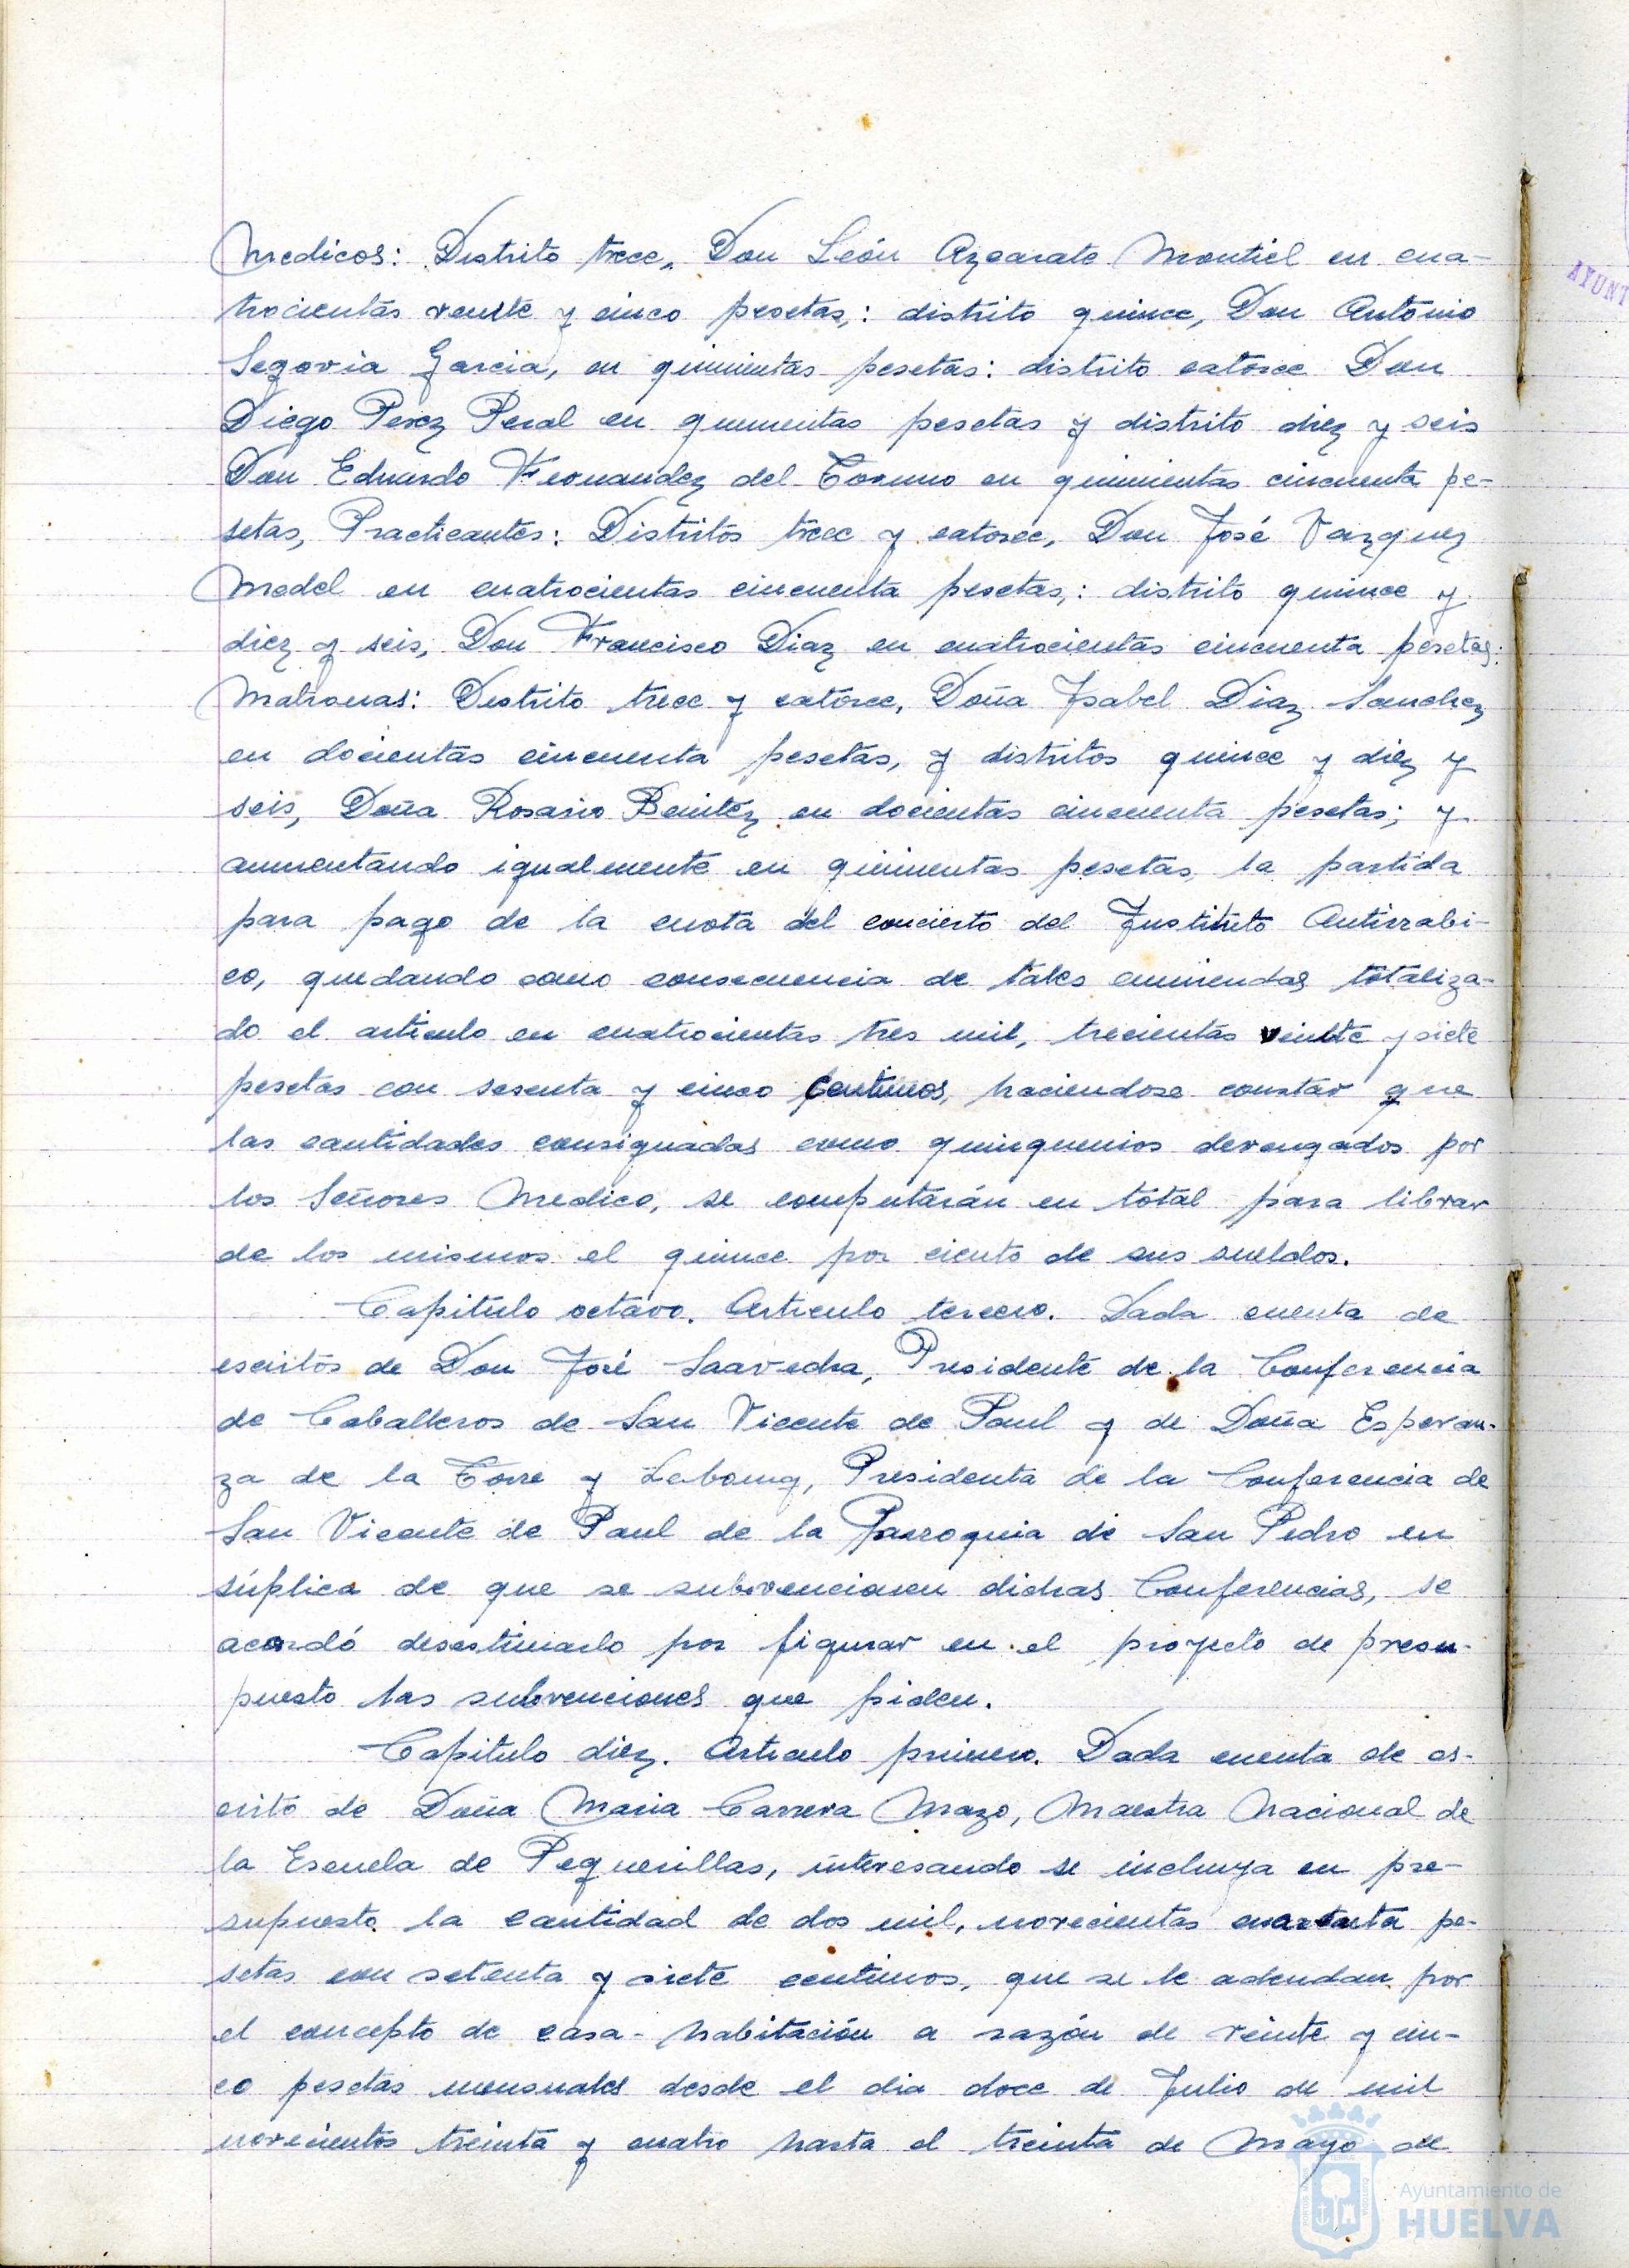 Medicos: Distrito trece, Don León Azcarate Montiel en cua-
trocientas veinte y cinco pesetas,: distrito quince, Don Antonio
Segovia Garcia, en quinientas pesetas: distrito catorce Don
Diego Perez Peral en quinientas pesetas y distrito diez y seis
Don Eduardo Fernandez del Torno en quinientas cincuenta pe-
setas, Practicantes: Distritos trece y catorce, Don José Vazquez
Medel en cuatrocientas cincuenta pesetas,: distrito quince y
diez y seis, Don Francisco Diaz en cuatrocientas cincuenta pesetas:
Matronas: Distrito trece y catorce, Doña Ysabel Diaz Sanchez
en docientas cincuenta pesetas, y distritos quince y diez y
seis, Doña Rosario Benitez en docientas cincuenta pesetas; y
aumentando igualmente en quinientas pesetas, la partida
para pago de la cuota del concierto del Instituto Antirrabi-
co, quedando como consecuencia de tales enmiendas totaliza-
do el articulo en cuatrocientas tres mil, trecientas veinte y siete
pesetas con sesenta y cinco centimos, haciendose constar que
las cantidades consignadas como quinquenios devengados por
los Señores Medico, se computarán en total para librar
de los mismos el quince por ciento de sus sueldos.
Capitulo octavo. Articulo tercero. Dada cuenta de
escritos de Don José Saavedra, Presidente de la Conferencia
de Caballeros de San Vicente de Paul y de Doña Esperan-
za de la Torre y, Presidenta de la Conferencia de
San Vicente de Paul de la Parroquia de San Pedro en
súplica de que se subvencionen dichas Conferencias, se
acordó desestimarlo por figurar en el proyecto de presu-
puesto las subvenciones que piden.
Capitulo diez. Articulo primero. Dada cuenta de es-
crito de Doña Maria Carrera Mazo, Maestra Nacional de
la Escuela de Pequerillas, interesando se incluya en pre-
supuesto la cantidad de dos mil, novecientas cuarenta pe-
setas con setenta y siete centimos, que se le adeudan por
el concepto de casa-habitación a razón de veinte y cin-
co pesetas mensuales desde el dia doce de Julio de mil
novecientos treinta y cuatro hasta el treinta de Mayo de
AYUNT
Ayuntamiento de
HUELVA